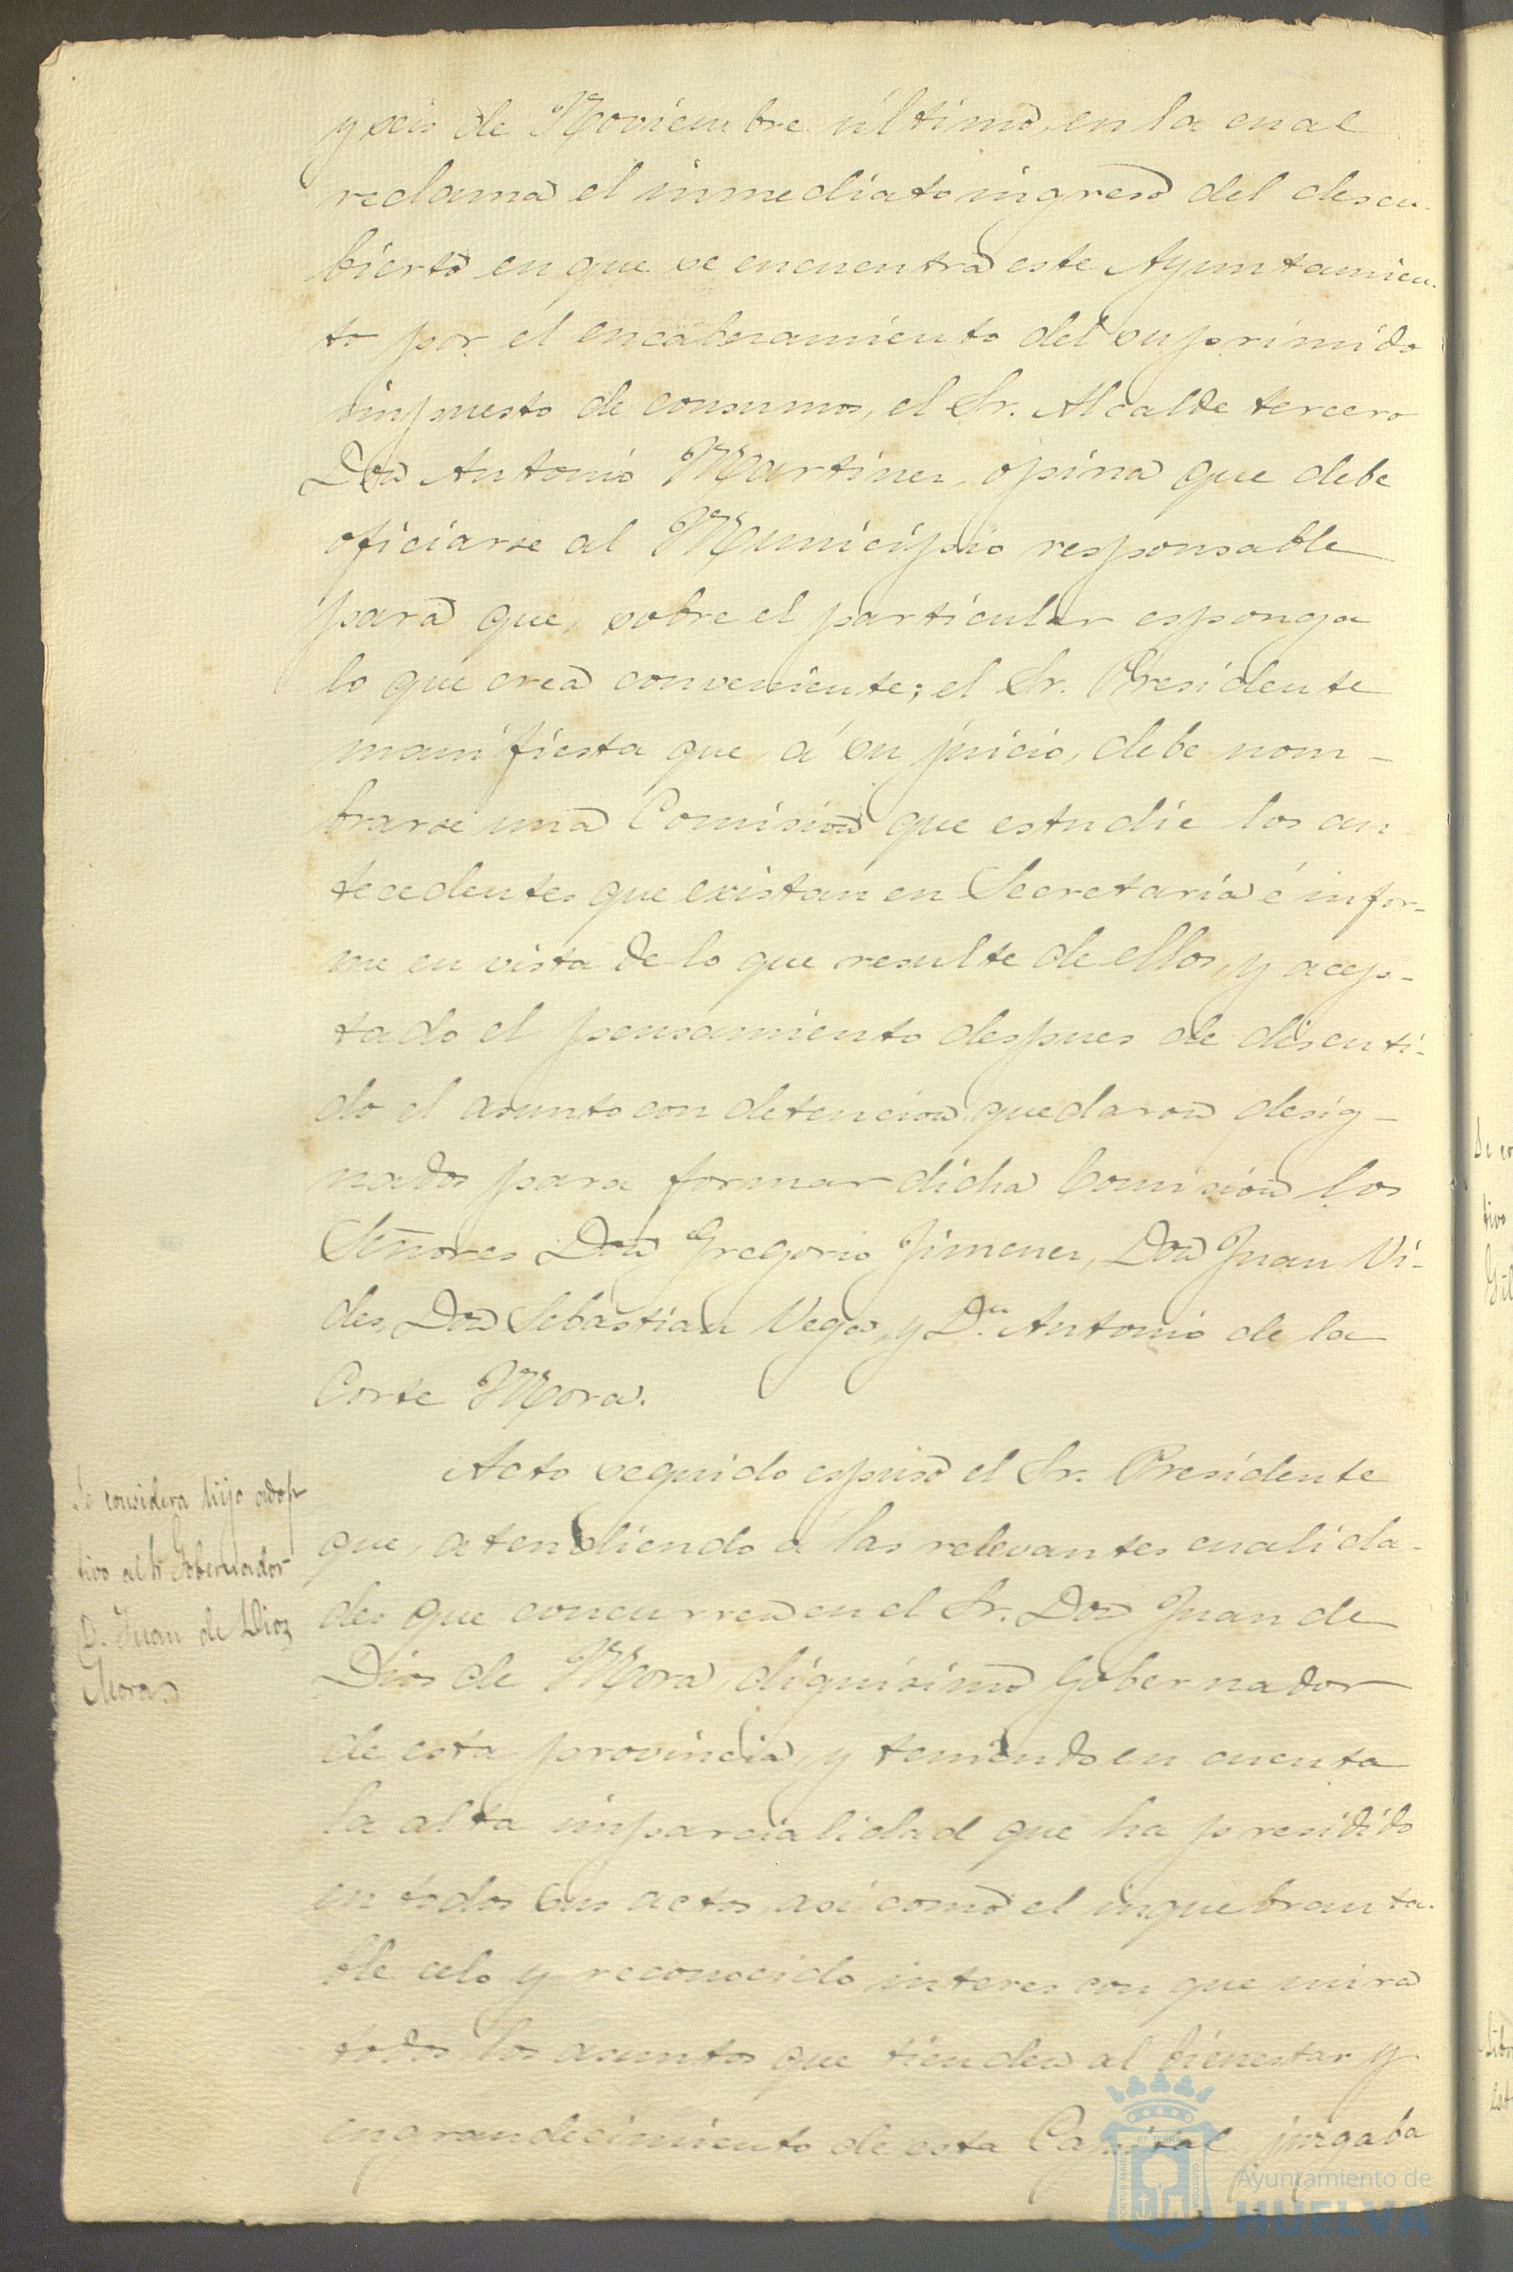 y seis de Noviembre último, en la cual
reclama el inmediato ingreso del descu-
bierto en que se encuentra este Ayuntamien-
to por el encabezamiento del suprimido
impuesto de consumos, el Sr. Alcalde tercero
Don Antonio Martinez, opina que debe
oficiarse al Municipio responsable
para que, sobre el particular esponga
lo que crea conveniente; el Sr. Presidente
manifiesta que, á su juicio, debe nom-
brarse una Comision que estudie los an
tecedentes que existan en Secretaría é infor-
me en vista de lo que resulte de ellos, y acep-
tado el pensamiento despues de discuti-
do el asunto con detencion, quedaron desig-
nados para formar dicha Comision los
Señores Don Gregorio Jimenez, Don Juan Vi-
des, Don Sebastian Vega, y Dn. Antonio de la
Corte Mora.
Se considera hijo adop
tivo al Sr Gobernador
D. Juan de Dios
Mora
Acto seguido espuso el Sr. Presidente
que, atendiendo á las relevantes cualida-
des que concurren en el Sr. Don Juan de
Dios de Mora, dignísimo Gobernador
de esta provincia, y teniendo en cuenta
la alta imparcialidad que ha presidido
en todos sus actos, así como el inquebranta-
ble celo y reconocido interes con que mira
todos los asuntos que tienden al bienestar y
engrandecimiento de esta Capital, juzgaba
Ayuntamiento de
HUELVA